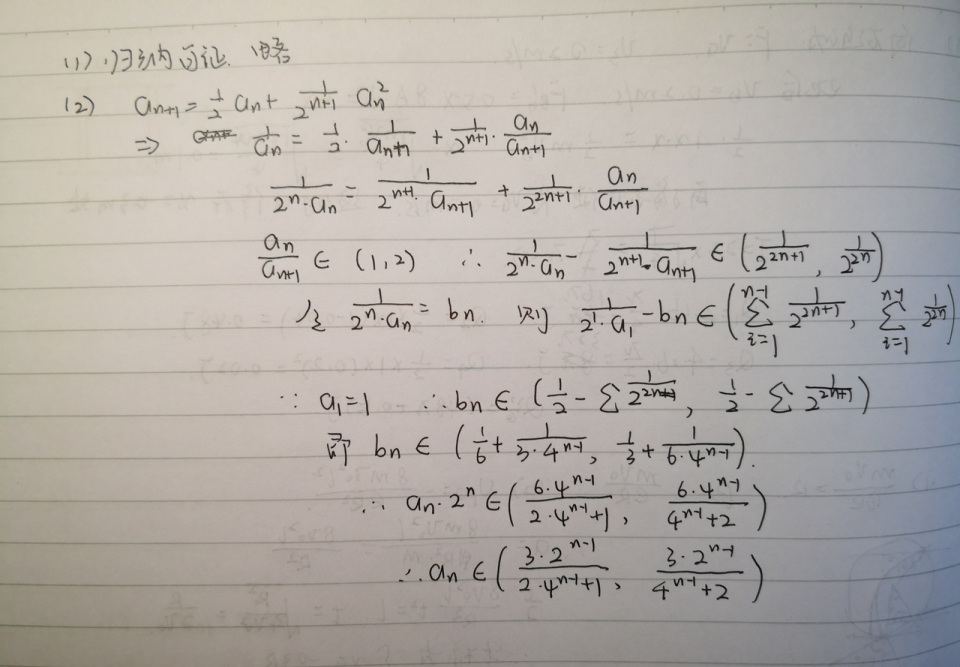 (1) 归纳可证. 略
(2) a_{n+1} = \frac{1}{2} a_n + \frac{1}{2^{n+1}} a_n^2
⇒ \frac{1}{a_n} = \frac{1}{2} · \frac{1}{a_{n+1}} + \frac{1}{2^{n+1}} · \frac{a_n}{a_{n+1}}
\frac{1}{2^n · a_n} = \frac{1}{2^{n+1} · a_{n+1}} + \frac{1}{2^{2n+1}} · \frac{a_n}{a_{n+1}}
\frac{a_n}{a_{n+1}} ∈ (1, 2) ∴ \frac{1}{2^n · a_n} - \frac{1}{2^{n+1} · a_{n+1}} ∈ (\frac{1}{2^{2n+1}}, \frac{1}{2^{2n}})
令 \frac{1}{2^n · a_n} = b_n. 则 \frac{1}{2^1 · a_1} - b_n ∈ (\sum_{i=1}^{n-1} \frac{1}{2^{2n+1}}, \sum_{i=1}^{n-1} \frac{1}{2^{2n}})
∵ a_1 = 1 ∴ b_n ∈ (\frac{1}{2} - \sum \frac{1}{2^{2n}}, \frac{1}{2} - \sum \frac{1}{2^{2n+1}})
即 b_n ∈ (\frac{1}{6} + \frac{1}{3·4^{n-1}}, \frac{1}{3} + \frac{1}{6·4^{n-1}}).
∴ a_n · 2^n ∈ (\frac{6·4^{n-1}}{2·4^{n-1}+1}, \frac{6·4^{n-1}}{4^{n-1}+2})
∴ a_n ∈ (\frac{3·2^{n-1}}{2·4^{n-1}+1}, \frac{3·2^{n-1}}{4^{n-1}+2})